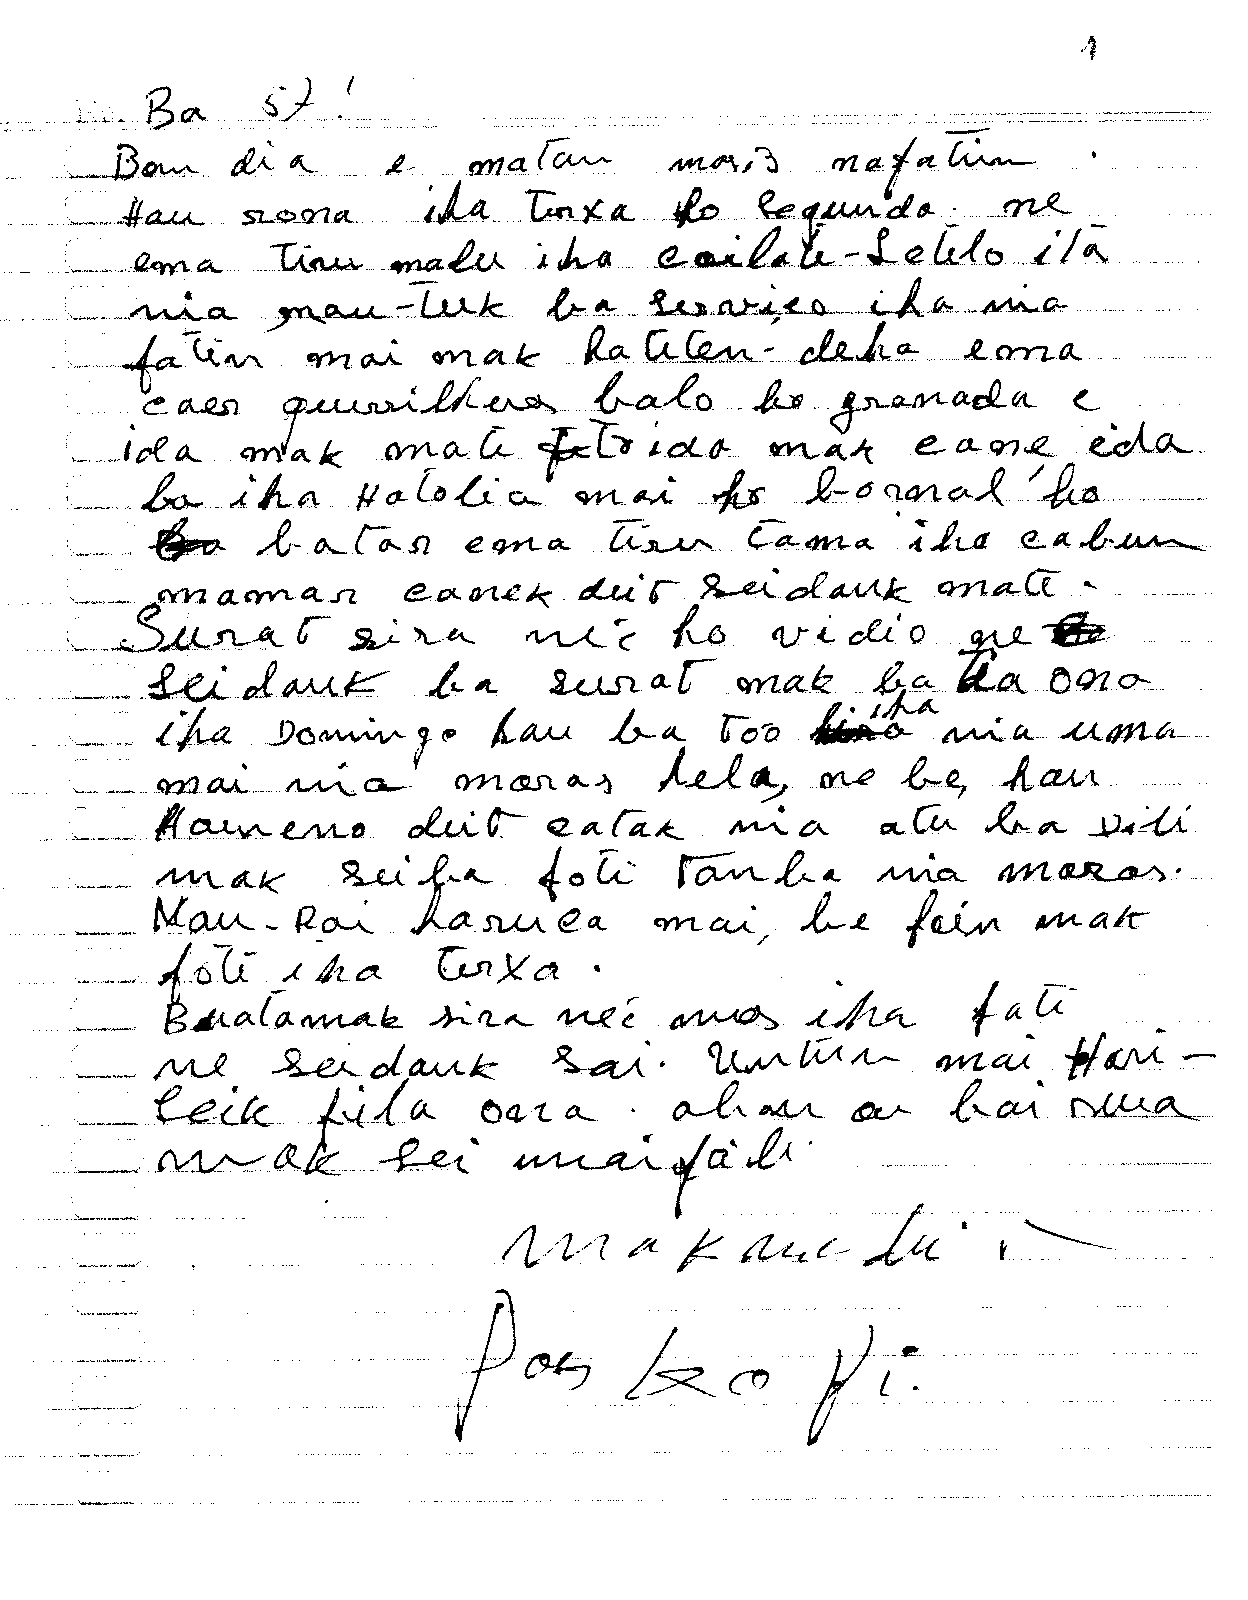 1
Ba 57!
Bom dia e matan moris nafatin.
Hau rona iha terxa ho segunda. ne
ema tiru malu iha Cailate-Letelo ita
nia mau-tuk ba serviço iha nia
fatin mai mak hateten-deha ema
caer guerrilheros balo ho granada e
ida mak mate ida mak cane ida
ba iha Hatolia mai ho bornal ho
batar ema tiru tama iha cabun
mamar canek deit seidauk mate.
Surat sira neé ho vidio ne
seidauk ba surat mak ba ta ona
iha Domingo hau ba too iha nia uma
mai nia moras hela, ne be, hau
Hameno deit catak nia atu ba Dili
mak sei ba foti tanba nia moras.
Mau-Rai haruca mai, be foin mak
foti iha terxa.
Buatamak sira neé mos iha fati
ne seidauk sai. Untun mai Hari-
Leik fila ona. aban ou bai rua
mak sei mai fali.
Mak ne dei